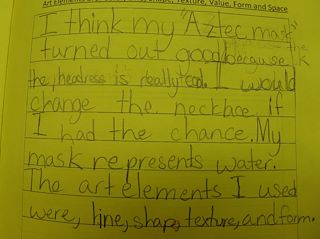 Texture, Value, Form and Space
I think my "Aztec mask"
turned out good because the
the, headress is really cool. I would
change the necklace if
I had the chance. My
mask represents water.
The art elements I used
were, line, shape, texture, and form.